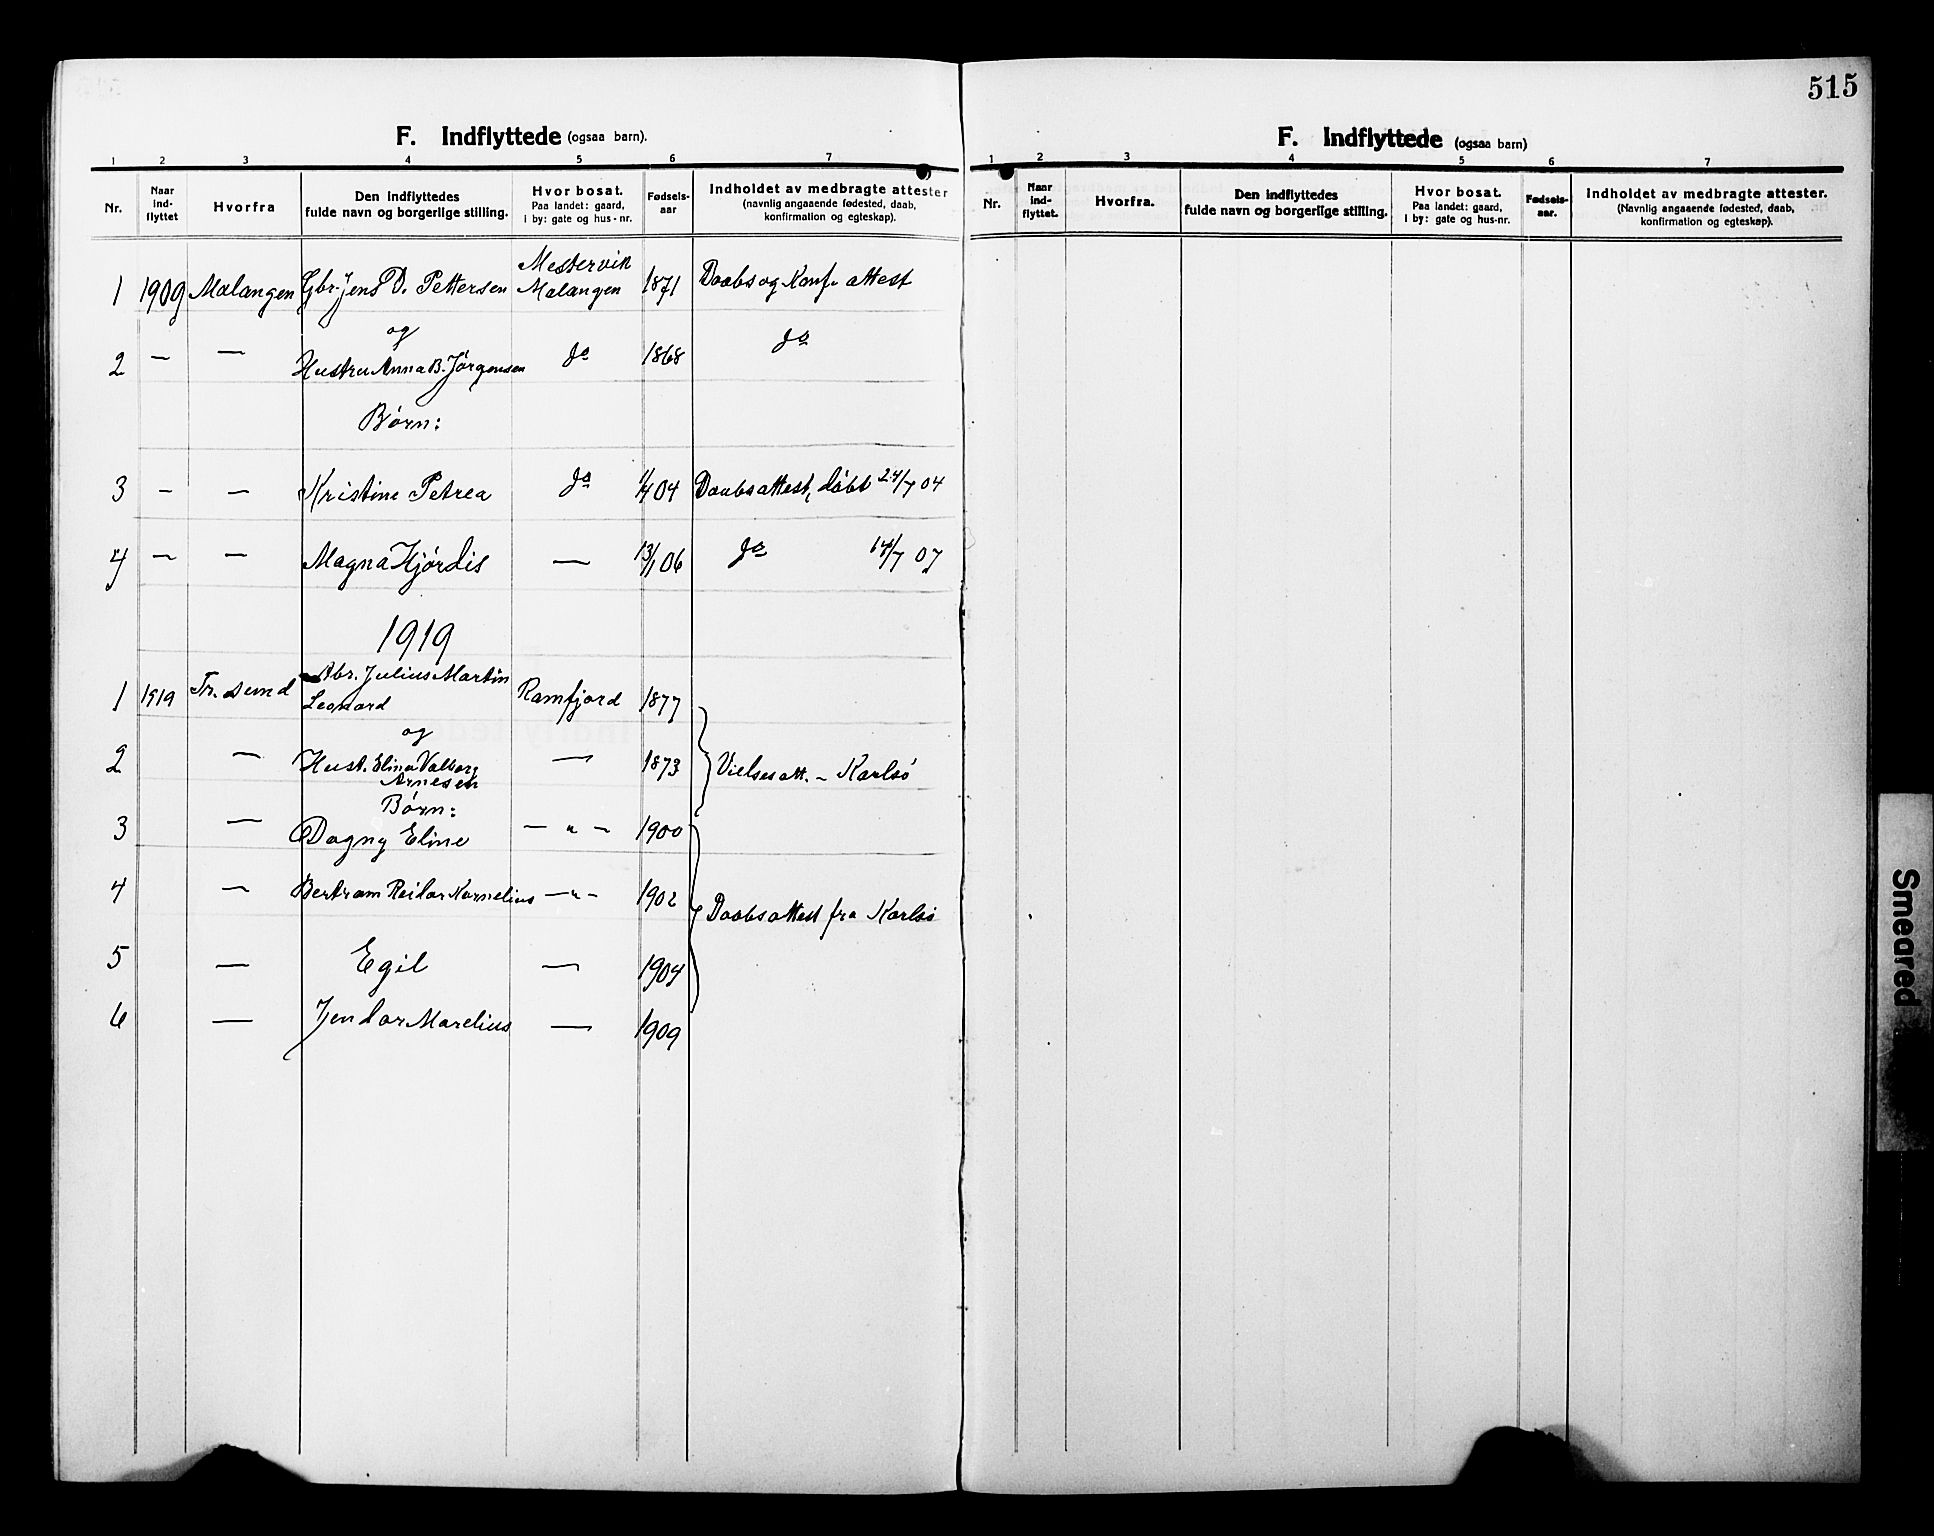 515
F. Indflyttede (ogsaa barn).
1 2 3 4 5 6 7
Nr. Naar ind-flyttet Hvorfra Den indflyttedes fulde navn og borgerlige stilling. Hvor bosat. Paa landet: gaard, I by: gate og hus-nr. Fødsels-aar Indholdet av medbragte attester (navnlig angaaende fødested, daab, konfirmation og egteskap).
1 1909 Malangen Gbr. Jens D. Pettersen Mestervik Malangen 1871 Daabs og Konf. attest
og
2 — — Hustru Anna B. Jørgensen do 1868 do
Børn:
3 — — Kristine Petrea do 1/4 04 Daabsattest, døbt 24/7 04
4 — — Magna Hjördis — 13/1 06 do 14/7 07
1919
1 1919 Tr. sund Abr. Julius Martin Leonard Ramfjord 1877
og
2 — Hust. Elina Valborg Arnesen — 1873 Vielsesatt. - Karlsö
Børn:
3 — Dagny Eline — " — 1900
4 — Bertram Reidar Kornelius — " — 1902 Daabsattest fra Karlsö
5 — Egil — 1904
6 — Jendor Marelius — 1909
F. Indflyttede (ogsaa barn)
1 2 3 4 5 6 7
Nr. Naar ind-flyttet. Hvorfra. Den indflyttedes fulde navn og borgerlige stilling. Hvor bosat. Paa landet: gaard, I by: gate og hus-nr. Fødsels-aar. Indholdet av medbragte attester. (Navnlig angaaende fødested, daab, konfirmation og egteskap).
Smeared